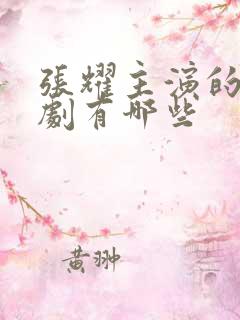 張耀主演的
劇有哪些
黄翀